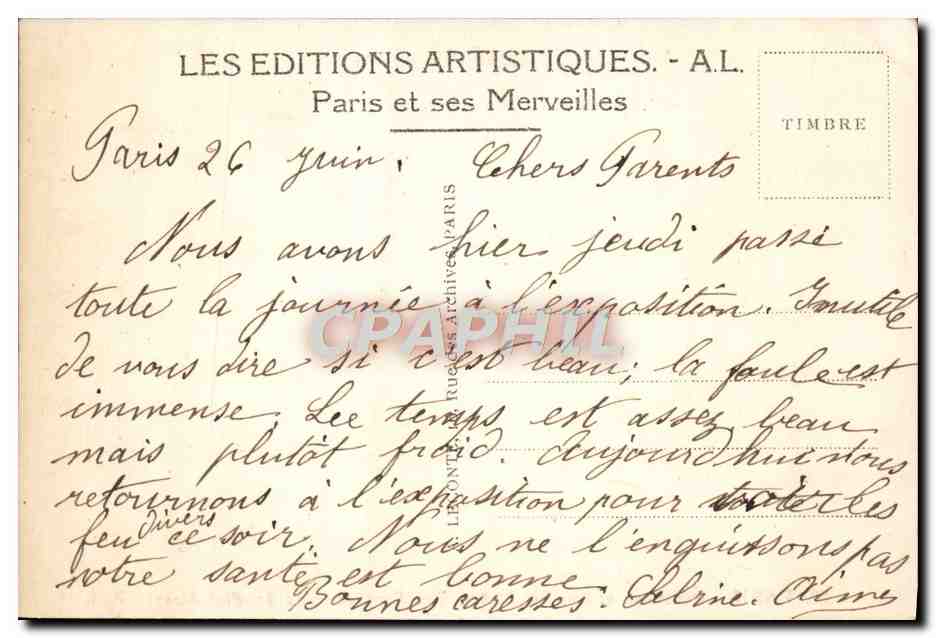 LES EDITIONS ARTISTIQUES. - A.L.
Paris et ses Merveilles
TIMBRE
Paris 26 Juin. Chers Parents
Nous avons hier jeudi passé
toute la journée à l'exposition. Inutile
de vous dire si c'est beau; la foule est
immense. Lee temps est assez beau
mais plutôt froid. Aujourd'hui nous
retournons à l'exposition pour voir les
feu divers ce soir. Nous ne l'enquissons pas
notre santé est bonne
Bonnes caresses. Aimé
Rue des Archives, PARIS
CPAPHIL